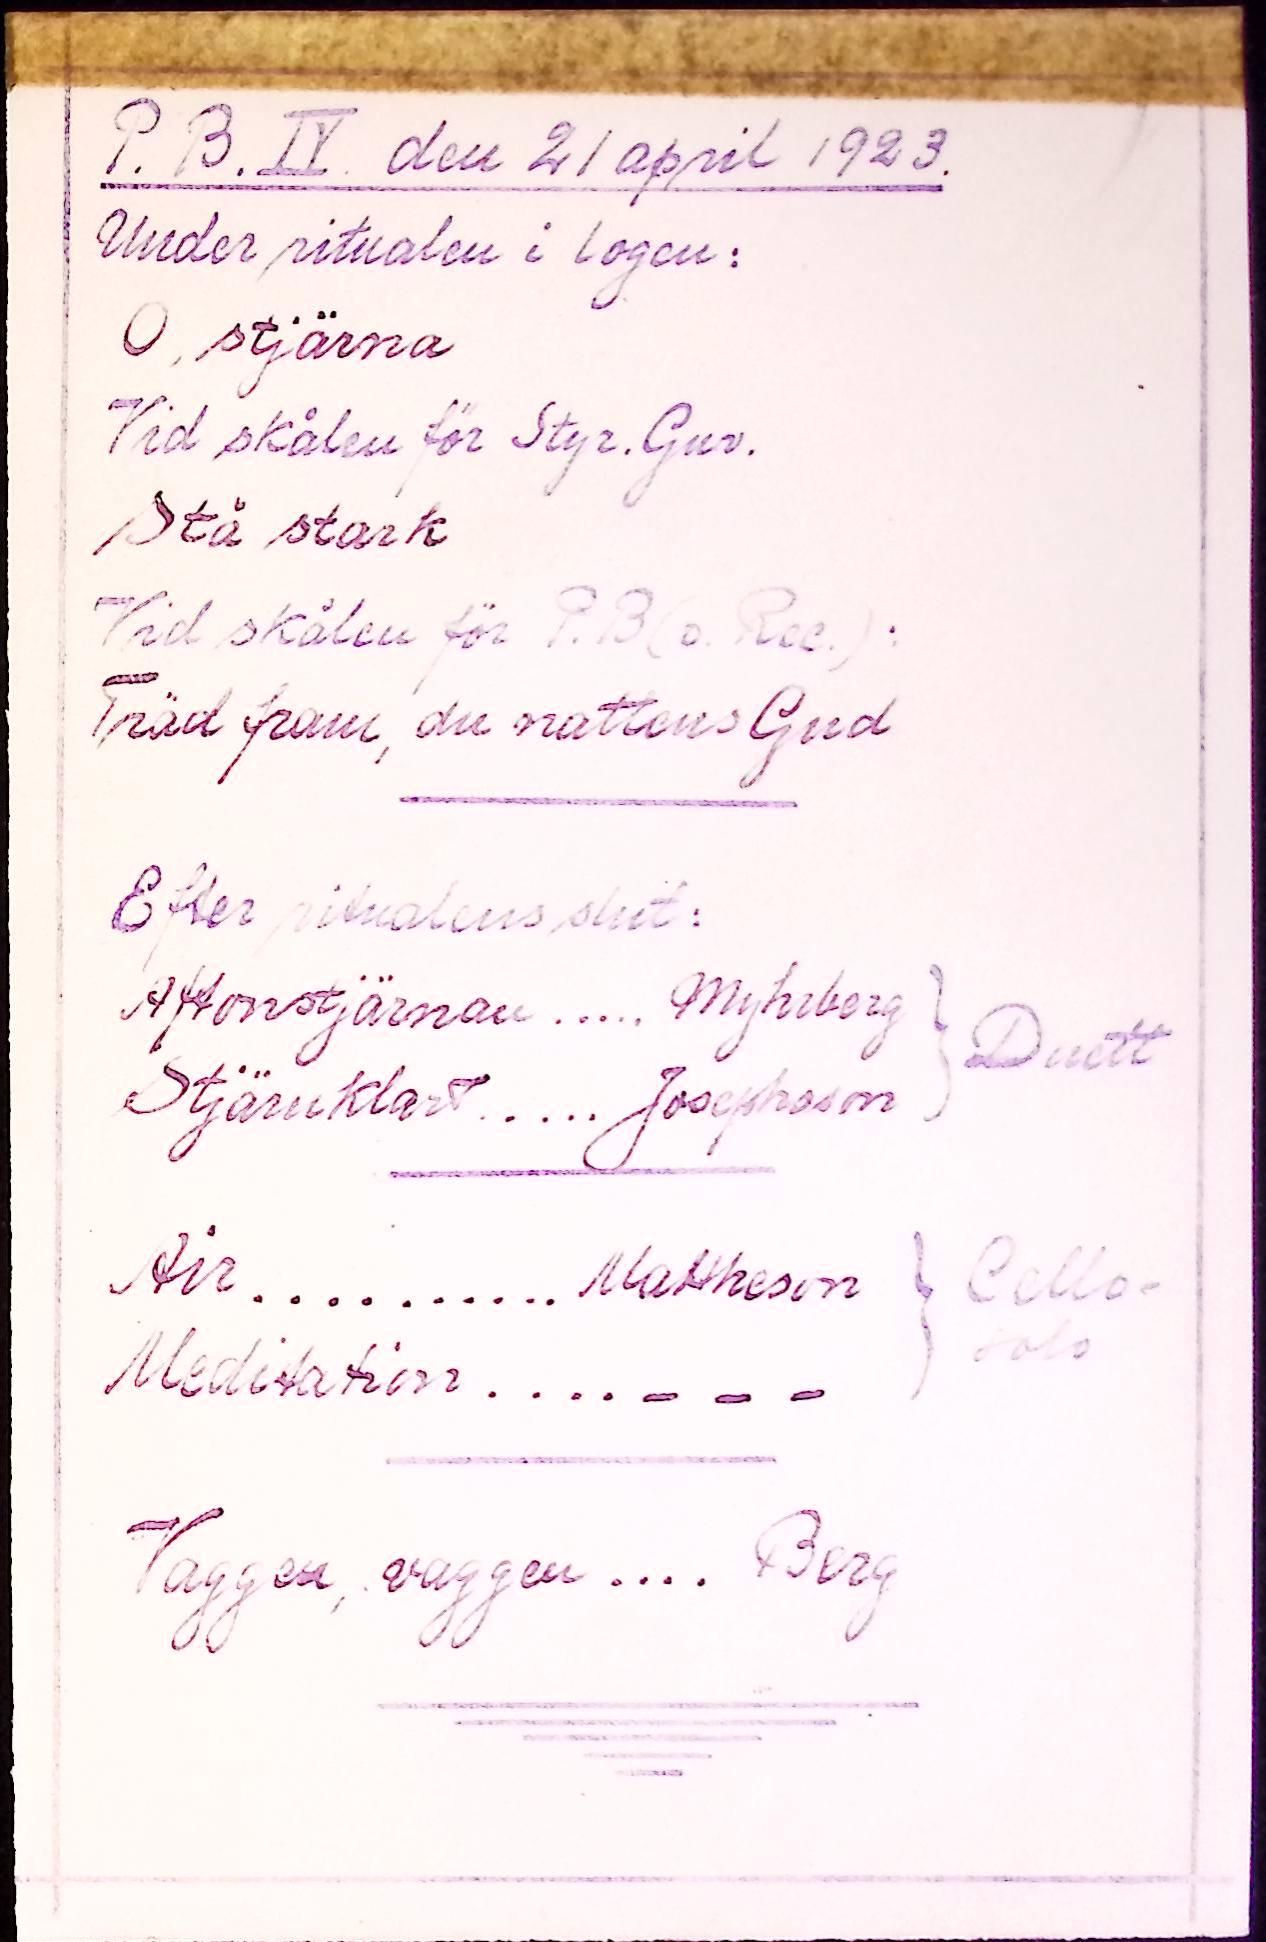 P. B. IV. den 21 april 1923.
Under ritualen i logen:
O, stjärna
Vid skålen för Styr. Guv.
Stå stark
Vid skålen för P. B (o. Rec.):
Träd fram, du nattens Gud
Efter ritualens slut:
Aftonstjärnan ..... Myhrberg } Duett
Stjärnklart ..... Josephson
Air ........... Mattheson } Cello-
solo
Meditation .... – – –
Vaggen, vaggen .... Berg